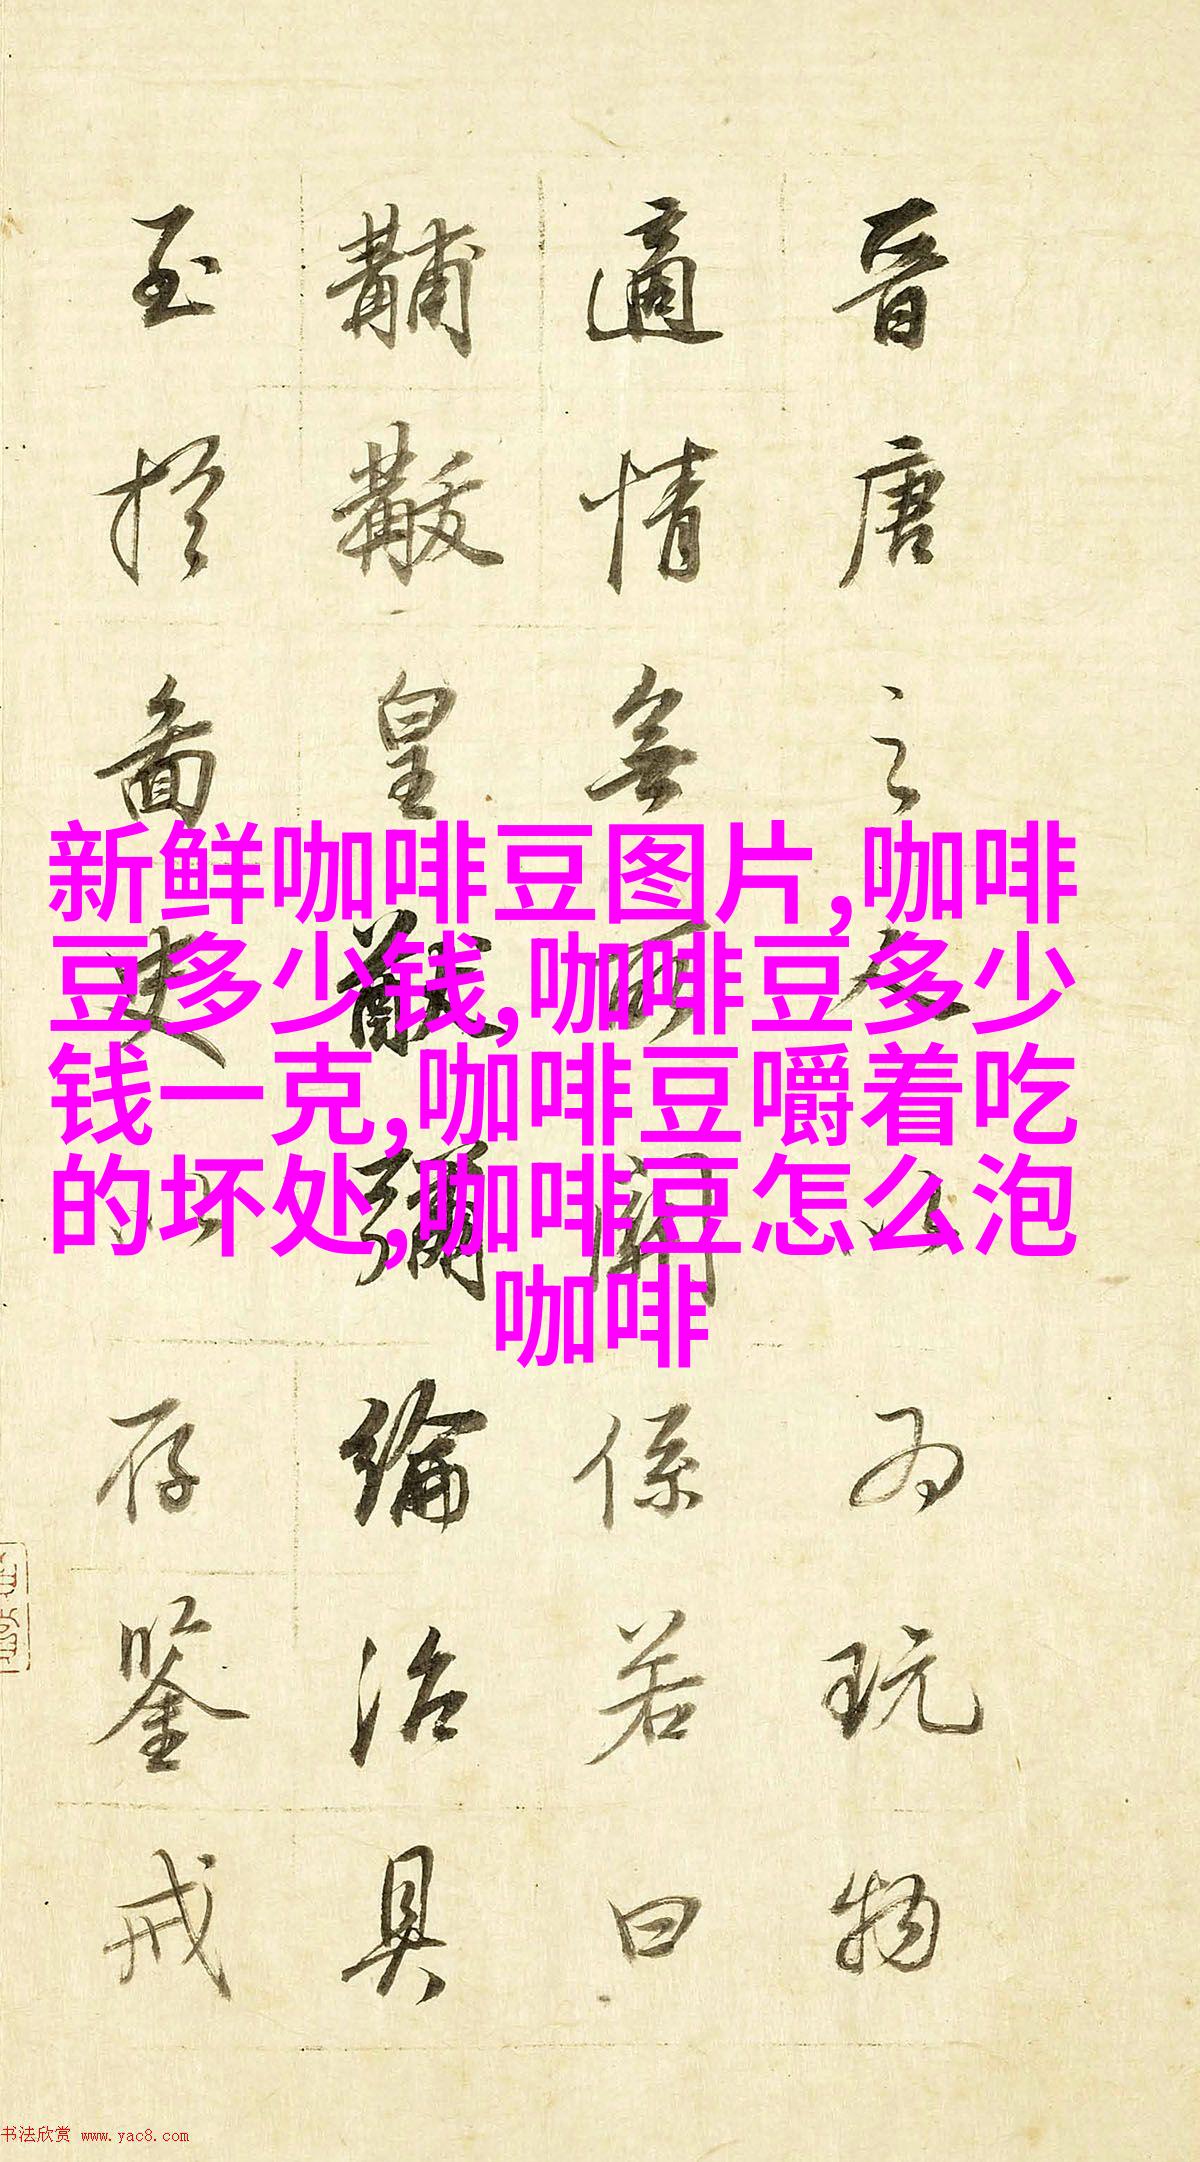 新鲜咖啡豆图片,咖啡
豆多少钱,咖啡豆多少
钱一克,咖啡豆嚼着吃
的坏处,咖啡豆怎么泡
咖啡
晉唐之人以為玩物
適情無所關係若曰
黼黻皇猷彌綸治具
至於圖史以存鑒戒
书法欣赏 www.yac8.com